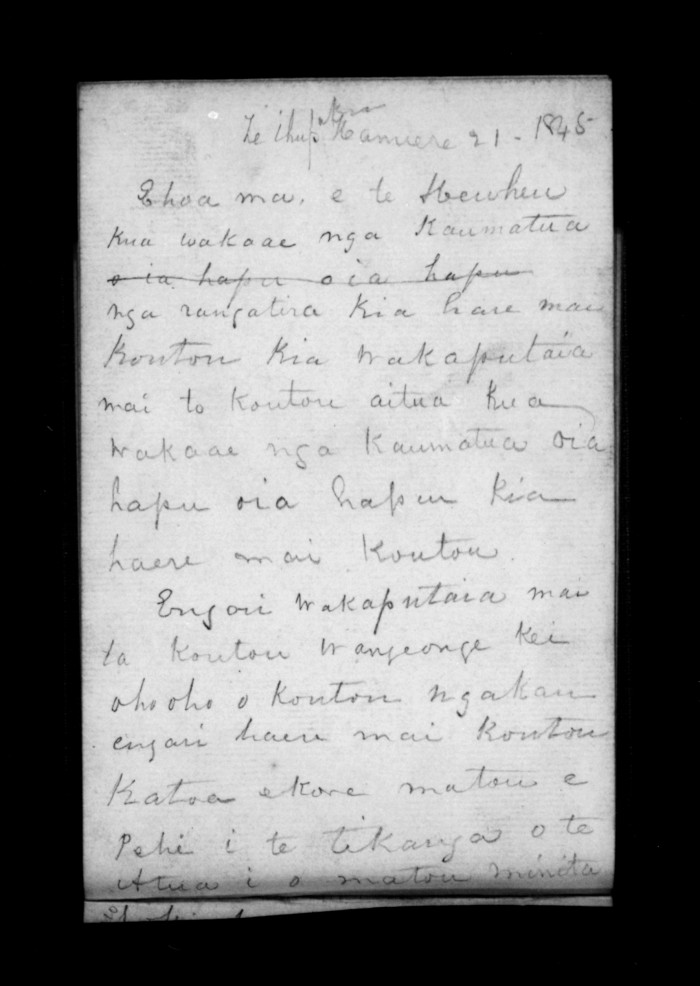 Te Ihup Hanuere 21 - 1845
Ehoa ma, e te Heuheu
Kua wakaae nga Kaumatua
oia hapu oia hapu
nga rangatira Kia haere mai
Koutou Kia Wakaputaia
mai to Koutou aitua Kua
Wakaae nga Kaumatua oia
hapu oia hapu Kia
haere mai Koutou.
Engari Wakaputaia mai
ta Koutou Wangeonge Kei
ohooho o Koutou ngakau
engari haere mai Koutou
Katoa ekore matou e
Pehi i te tikanga o te
Atua i o matou minita